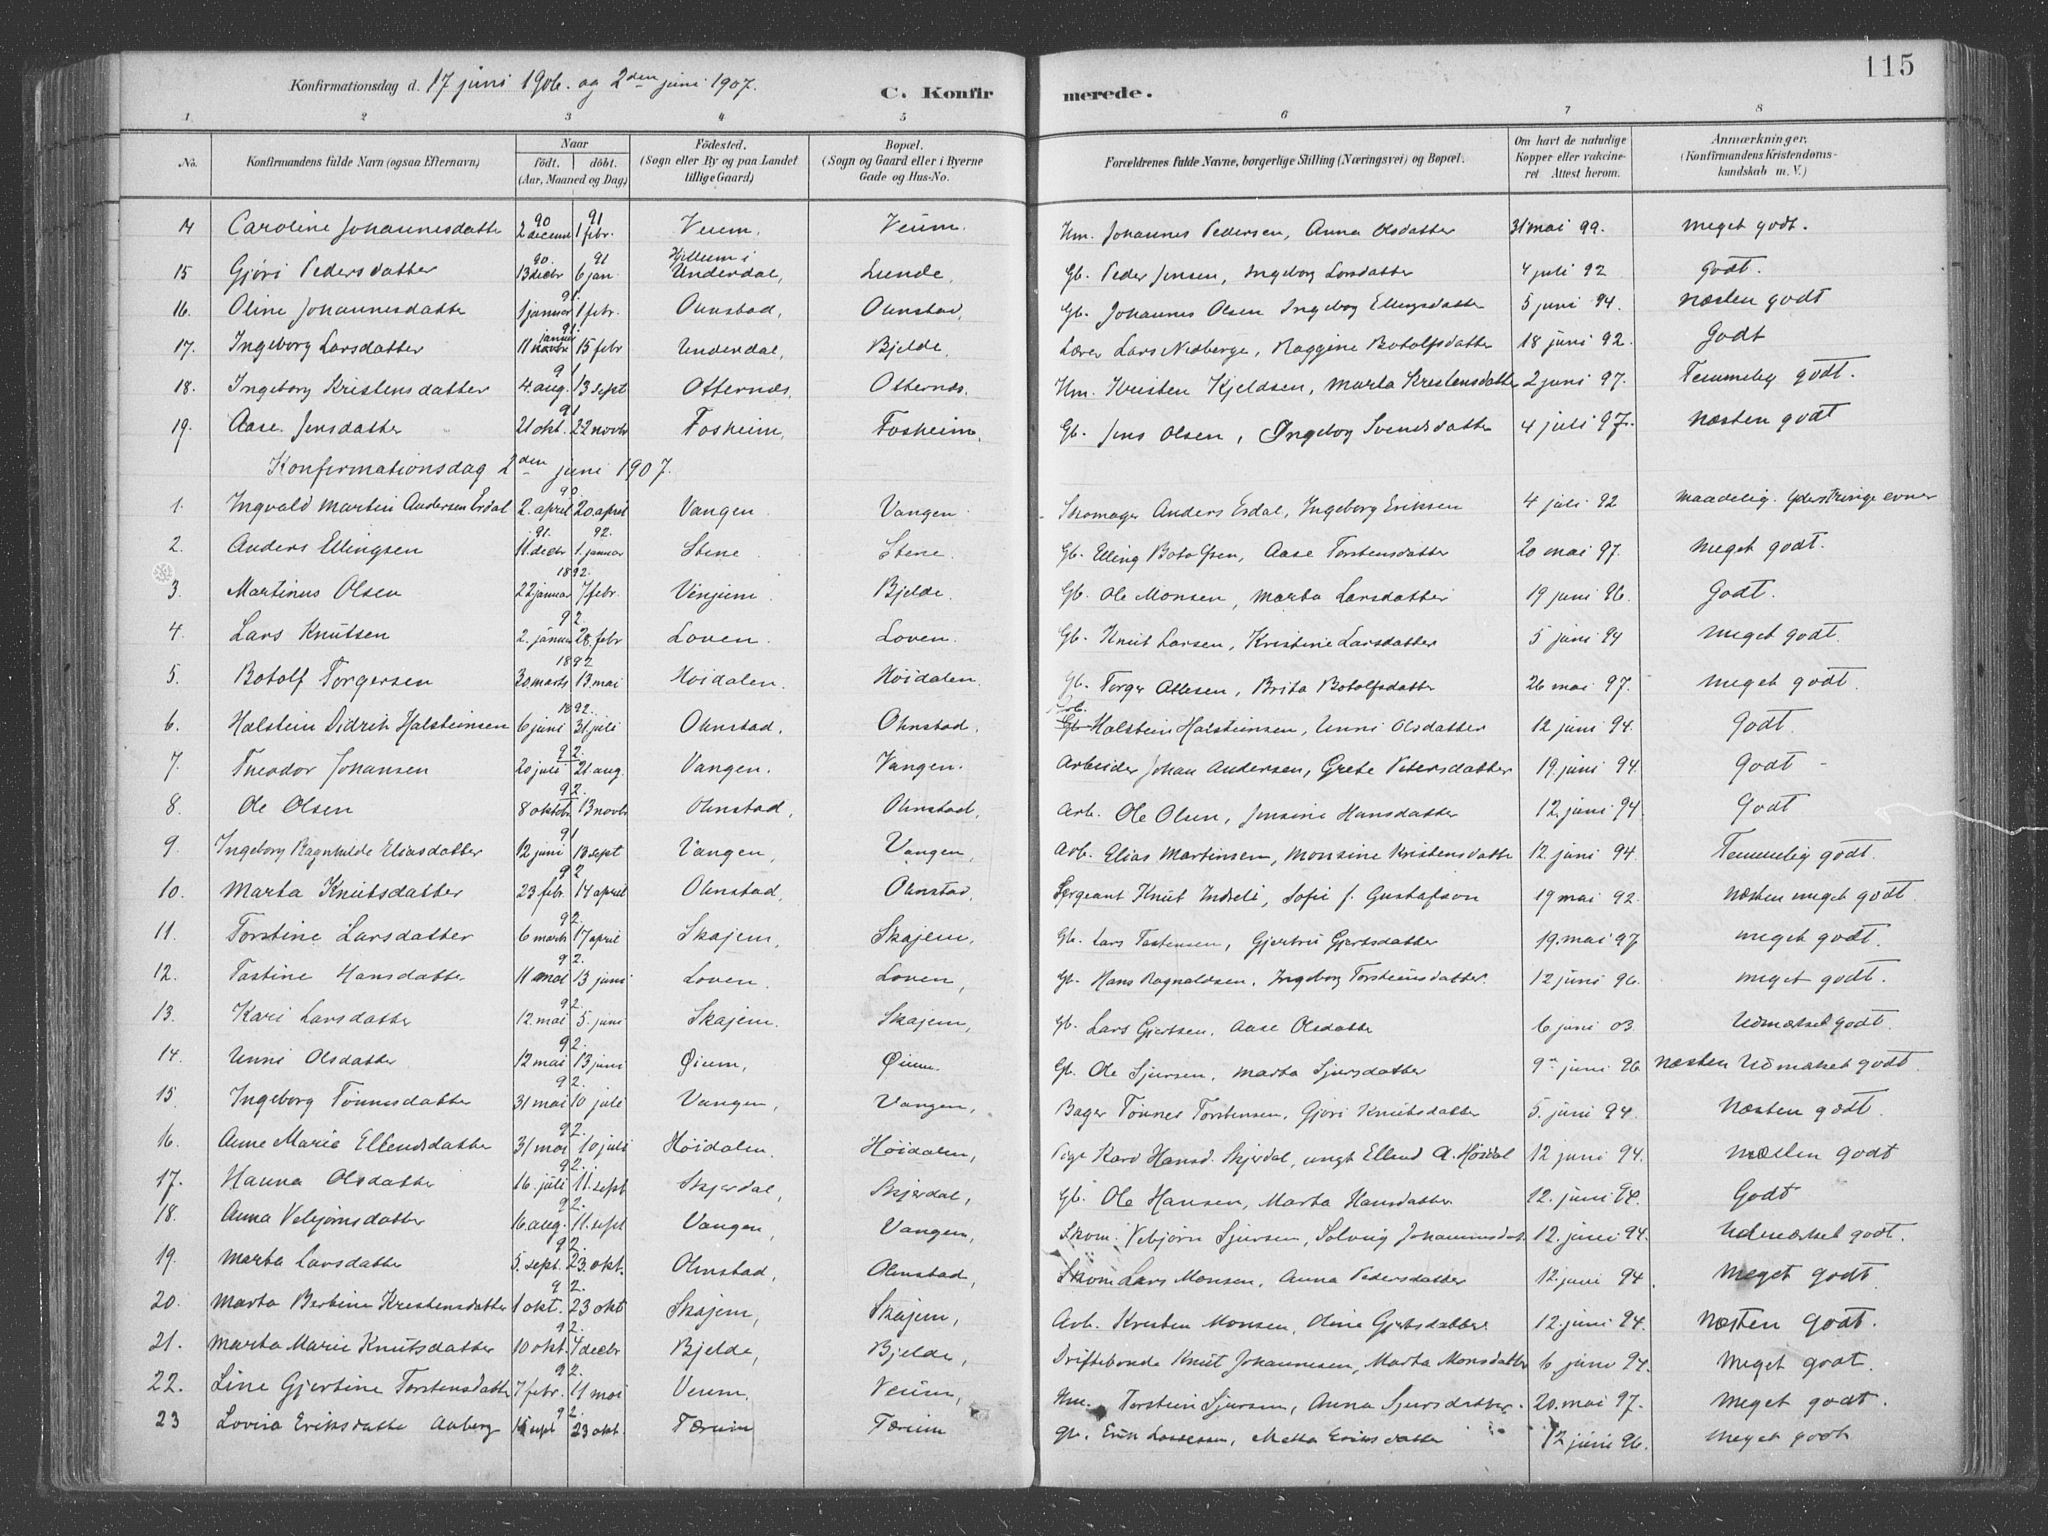 115
Konfirmationsdag d. 17 juni 1906. og 2den juni 1907.
C. Konfirmerede.
1. 2 3 4 5 6 7 8
No. Konfirmandens fulde Navn (ogsaa Efternavn) Naar født. døbt. (Aar, Maaned og Dag) Fødested. (Sogn eller By og paa Landet tillige Gaard) Bopæl. (Sogn og Gaard eller i Byerne Gade og Hus-No. Forældrenes fulde Navne, borgerlige Stilling (Næringsvei) og Bopæl. Om havt de naturlige Kopper eller vakcineret Attest herom. Anmærkninger. (Konfirmandens Kristendomskundskab m. V.)
14 Caroline Johannesdatter 90 2 decemb 91 1 febr. Veum. Veum. Hm. Johannes Pedersen, Anna Olsdatter 31 mai 99. meget godt.
15 Gjøri Pedersdatter 90. 13 decbr 91 6 jan. i Underdal, Lunde, Gb. Peder Jensen, Ingeborg Larsdatter 4 juli 92 Godt.
16. Oline Johannesdatter 91. 1 januar 1 febr. Ohnstad, Ohnstad, Gb. Johannes Olsen Ingeborg Ellingsdatter 5 juni 94. næsten godt
17. Ingeborg Larsdatter 91 januar 11 novbr 15 febr Underdal, Bjelde, Lærer Lars Nedberge, Raggine Botolfsdatter 18 juni 92. Godt
18. Ingeborg Kristensdatter 91 4. aug. 13 sept Otternæs, Otternæs. Hm. Kristen Kjeldsen, Marta Kristensdatter 2 juni 97. Temmelig godt.
19. Aase Jensdatter 91 21 okt. 22 novbr Fosheim, Fosheim, Gb. Jens Olsen, Ingeborg Svendsdatter 4 juli 97. næsten godt
Konfirmationsdag 2den juni 1907.
1. Ingvald Martin Andersen Esdal 90 2. april 20 april Vangen. Vangen. Skomager Anders Esdal, Ingeborg Eriksen 4 juli 92 maadelig. yderst ringe evner
2. Anders Ellingsen 91. 11. decbr 92. 1. januar Stene. Stene. Gb. Elling Botolfsen, Aase Torstensdatter 20 mai 97. meget godt.
3. Martinus Olsen 1892. 22 januar 7 febr. Vinjum. Bjelde. Gb. Ole Monsen, Marta Larsdatter 19 juni 96. Godt.
4. Lars Knutsen 92. 2. januar 28. febr Loven. Loven. Gb. Knut Larsen, Kristine Larsdatter 5 juni 94 meget godt.
5. Botolf Torgersen 1892 30. marts 13. mai Høidalen. Høidalen. Gb. Torger Attesen, Brita Botolfsdatter 26 mai 97. meget godt.
6. Halstein Didrik Halsteinsen 1892. 6 juni 31 juli Ohnstad, Ohnstad, Arb. Gb Halstein Halsteinsen, Unni Olsdatter 12 juni 94. Godt.
7. Theodor Johansen 92. 20 juli 21 aug. Vangen. Vangen. Arbeider Johan Andersen, Grete Petersdatter 19. juni 94. Godt
8. Ole Olsen 92. 8 oktbr 13 novbr Ohnstad, Ohnstad. Arb. Ole Olsen, Jensine Hansdatter 12. juni 94. Godt
9. Ingeborg Ragnhilde Eliasdatter 91 12 juni 18 sept Vangen, Vangen, Arb. Elias Martinsen, Monsine Kristensdatter 12. juni 94. Temmelig godt.
10. Marta Knutsdatter 92 23 febr. 14 april Ohnstad, Ohnstad, Sergeant Knut Indreli, Sofie J. Gustafson 19 mai 92. Næsten meget godt.
11. Torstine Larsdatter 92. 6 marts 17 april Skajem, Skajem, Gb. Lars Tostensen, Gjertru Gjertsdatter 19. mai 97 meget godt.
12. Tostine Hansdatter 92. 11 mai 13 juni Loven. Loven, Gb. Hans Ragnaldsen, Ingeborg Torsteinsdatter. 12 juni 96. meget godt.
13. Kari Larsdatter 92. 12. mai 5. juni Skajem. Skajem, Gb. Lars Gjertsen, Aase Olsdatter 6 juni 03. Udmerket godt.
14. Unni Olsdatter 92. 12 mai 13 juni Øium, Øium. Gb. Ole Sjursen, Marta Sjursdatter 9 juni 96 Næsten Udmerket godt.
15 Ingeborg Tønnesdatter 92. 31 mai 10 juli Vangen, Vangen, Bager Tønnes Torstensen, Gjøri Knutsdatter 5. juni 94. Næsten godt.
16. Anne Marie Ellendsdatter 92. 31 mai 10 juli Høidalen. Høidalen, Pige Kari Hansd. Skjerdal, ungk Ellend A. Høidal 12 juni 94. Næsten godt
17. Hanna Olsdatter 92. 16. juli 11. sept Skjerdal, Skjerdal, Gb. Ole Hansen, Marta Hansdatter 12. juni 94. Godt
18. Anna Vebjørnsdatter 92. 16 aug. 11. sept Vangen, Vangen, Skom. Vebjørn Sjursen, Solvig Johannesdat. 12. juni 94. Udmærket godt.
19. Marta Larsdatter 92. 5. sept. 23. okt. Ohnstad, Ohnstad, Skom Lars Monsen, Anna Pedersdatter 12. juni 94. meget godt
20. Marta Bertine Kristensdatter 92. 1 okt. 23 okt Skajem, Skajem, Arb. Kristen Monsen, Oline Gjertsdatter. 12. juni 94. Næsten godt.
21. Marta Marie Knutsdatter 92. 10 okt. 4 decbr Bjelde, Bjelde, Driftebonde Knut Johannesen, Marta Monsdatter 6 juni 94. meget godt.
22. Line Gjertine Torstensdatter 92. 7 febr. 11 mai Veum, Veum, Hm. Torstein Sjursen, Anna Sjursdatter. 20. mai 97. meget godt.
23 Lovisa Eriksdatte Aaberg 92. 15 sept 23 okt. Tærum Tærum Gb. Erik Lassesen, Metta Eriksdatte 12 juni 96. meget godt